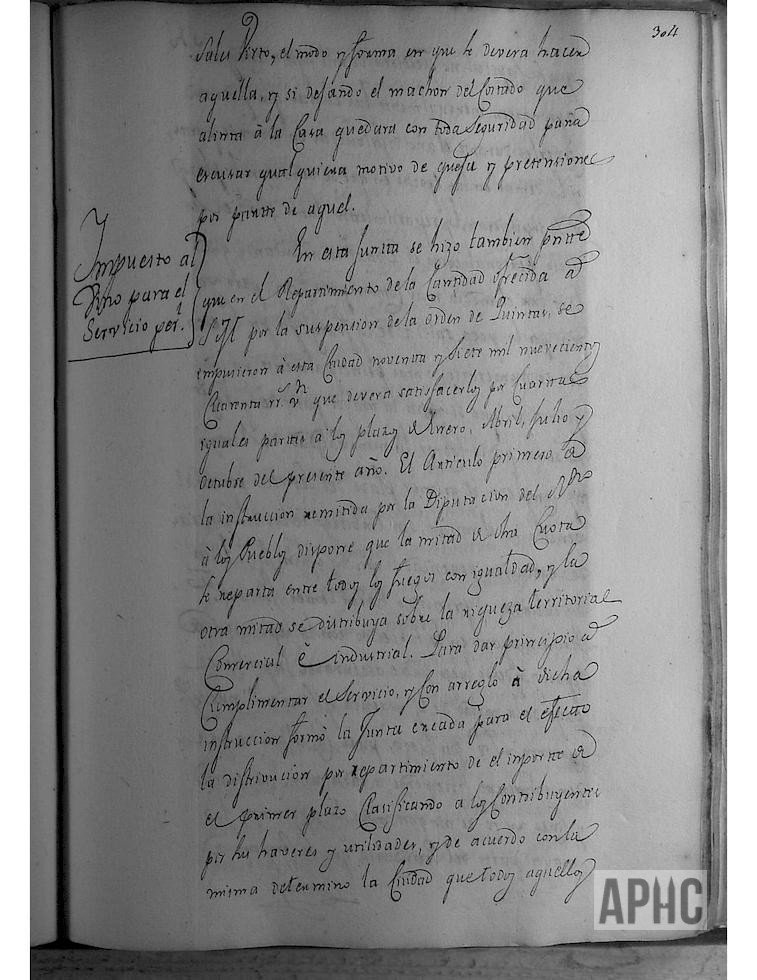 304
Sales Puerto, el modo y forma en que se devera hacer
aquella, y si dejando el machon del Costado que
alinta à la Casa quedara con toda Seguridad para
escusar qualquiera motivo de queja y pretensiones
por partte de aquel.
Impuesto al
Vino para el
Servicio per.l
En esta Junta se hizo tambien pntte
que en el Repartimiento de la Cantidad ofrecida â
S. M. por la suspension de la orden de Quintas, se
impusieron à esta Ciudad noventa y Siete mil nuevecientos
Quarenta rr.s v.n que devera satisfacerlos por Cuartas
iguales partes a los plazos de Enero, Abril, Julio y
Octubre del presente año. El Articulo primero de
la instruccion remitida por la Diputacion del Rno
à los Pueblos dispone que la mitad de dha Cuota
se reparta entre todos los fuegos con igualdad, y la
otra mitad se distribuya sobre la riqueza territorial
Comercial è industrial. Para dar principio à
Cumplimentar el Servicio, y Con arreglo à dicha
instruccion formò la Junta creada para el efecto
la distribucion por repartimiento de el importte de
el primer plazo Clasificando a los Contribuyentes
por sus haveres y utilidades, y de acuerdo con la
misma determino la Ciudad que todos aquellos
APHC